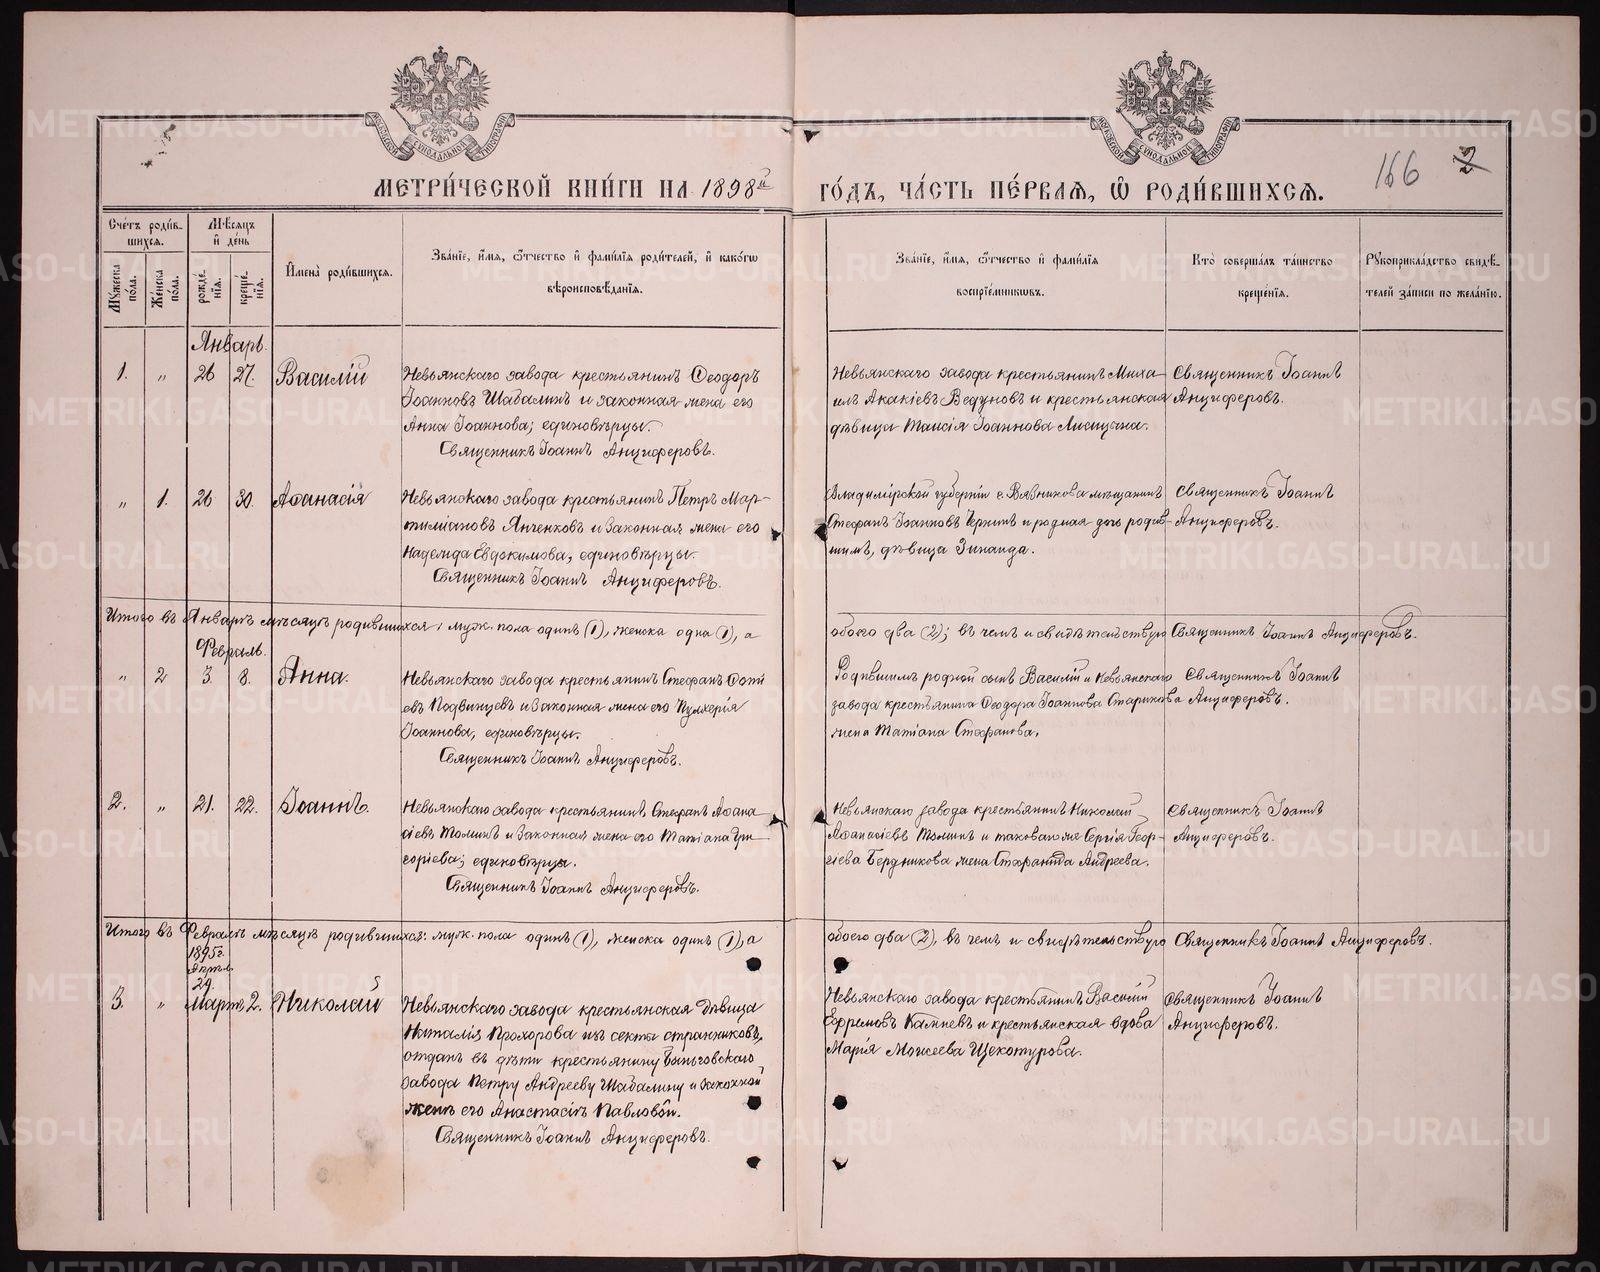 МЕТРИ́ЧЕСКОЙ КНИ́ГИ НА 1898й ГО́ДЪ, ЧА́СТЬ ПЕ́РВАЯ, Ѿ РОДИ́ВШИХСЯ.
166 2
Сче́тъ роди́в-
шихся.
Мѣ́сяцъ
и҆ де́нь
Му́жеска
по́ла.
Же́нска
по́ла.
рожде́-
нїя.
креще́-
нїя.
И҆мена̀ роди́вшихся.
Зва́нїе, и҆́мя, ѻ҆́тчество и҆ фами́лїя роди́телей, и҆ како́гѡ
вѣроисповѣ́данїя.
Зва́нїе, и҆́мя, ѻ҆́тчество и҆ фами́лїя
воспрїе́мникѡвъ.
Кто̀ соверша́лъ та́инство
креще́нїя.
Рꙋкоприкла́дство свидѣ́-
телей за́писи по жела́нїю.
Январь.
1. „ 26 27. Василій
Невьянскаго завода крестьянинъ Ѳеодоръ
Іоанновъ Шабалинъ и законная жена его
Анна Іоаннова; единовѣрцы.
Священникъ Іоаннъ Анциферовъ.
Невьянскаго завода крестьянинъ Миха-
илъ Акакіевъ Ведуновъ и крестьянская
дѣвица Таисія Іоаннова Лисицына.
Священникъ Іоаннъ
Анциферовъ.
„ 1. 26 30. Аѳанасія
Невьянскаго завода крестьянинъ Петръ Мар-
тиміановъ Янченковъ и законная жена его
Надежда Евдокимова, единовѣрцы.
Священникъ Іоаннъ Анциферовъ.
Владимірской губерніи г. Вязникова мѣщанинъ
Стефанъ Іоанновъ Чернинъ и родная дочь родив-
шимъ, дѣвица Зинаида.
Священникъ Іоаннъ
Анциферовъ.
Итого въ Январѣ мѣсяцѣ родившихся: муж. пола одинъ (1), женска одна (1), а
обоего два (2); въ чемъ и свидѣтельствую Священникъ Іоаннъ Анциферовъ.
Февраль.
„ 2 3. 8. Анна.
Невьянскаго завода крестьянинъ Стефанъ Фоті
евъ Подвинцевъ и законная жена его Пулхерія
Іоаннова, единовѣрцы.
Священникъ Іоаннъ Анциферовъ.
Родившимъ родной сынъ Василій и Невьянскаго
завода крестьянина Ѳеодора Іоаннова Старикова
жена Татіана Стефанова.
Священникъ Іоаннъ
Анциферовъ.
2. „ 21. 22. Іоаннъ.
Невьянскаго завода крестьянинъ Стефанъ Аѳана
сіевъ Томинъ и законная жена его Татіана Гри
горіева; единовѣрцы.
Священникъ Іоаннъ Анциферовъ.
Невьянскаго завода крестьянинъ Николай
Аѳанасіевъ Томинъ и таковагоже Сергія Геор-
гіева Бердникова жена Стефанида Андреева.
Священникъ Іоаннъ
Анциферовъ.
Итого въ Февралѣ мѣсяцѣ родившихся: муж. пола одинъ (1), женска одинъ (1), а
обоего два (2), въ чемъ и свидѣтельствую Священникъ Іоаннъ Анциферовъ.
1895г.
Апрѣля
29.
Мартъ
3. „ 2. Николай
Невьянскаго завода крестьянская дѣвица
Наталія Прохорова изъ секты странниковъ,
отданъ въ дѣти крестьянину Быньговскаго
завода Петру Андрееву Шабалину и законной
женѣ его Анастасіѣ Павловой.
Священникъ Іоаннъ Анциферовъ.
Невьянскаго завода крестьянинъ Василій
Ефремовъ Катневъ и крестьянская вдова
Марія Моисеева Щекотурова.
Священникъ Іоаннъ
Анциферовъ.
METRIKI.GASO-URAL.RU